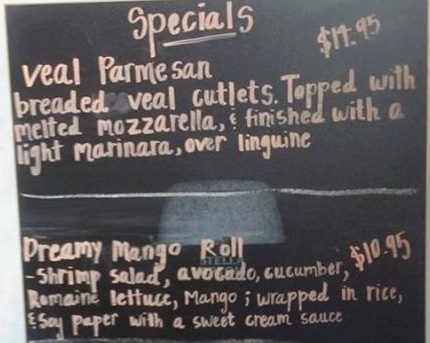 Specials
$14.95
veal Parmesan
breaded veal cutlets. Topped with
melted mozzarella, & finished with a
light marinara, over linguine
STELLA
Dreamy Mango Roll
$10.95
-shrimp salad, avocado, cucumber,
Romaine lettuce, Mango ; wrapped in rice,
& Soy paper with a sweet cream sauce